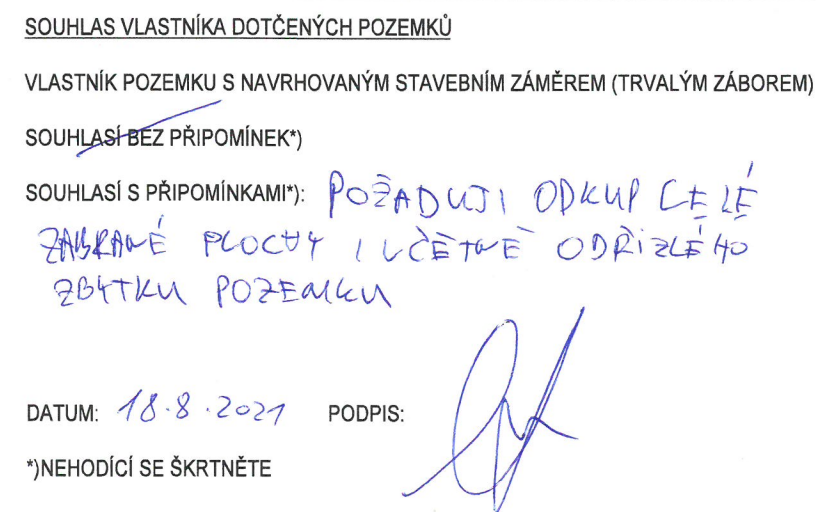 SOUHLAS VLASTNÍKA DOTČENÝCH POZEMKŮ
VLASTNÍK POZEMKU S NAVRHOVANÝM STAVEBNÍM ZÁMĚREM (TRVALÝM ZÁBOREM)
SOUHLASÍ BEZ PŘIPOMÍNEK*)
SOUHLASÍ S PŘIPOMÍNKAMI*): POŽADUJI ODKUP CELÉ
ZABRANÉ PLOCHY I VČETNĚ ODŘÍZLÉHO
ZBYTKU POZEMKU
DATUM: 18.8.2021 PODPIS:
*)NEHODÍCÍ SE ŠKRTNĚTE